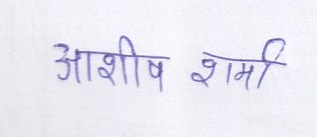 आशीष शर्मा